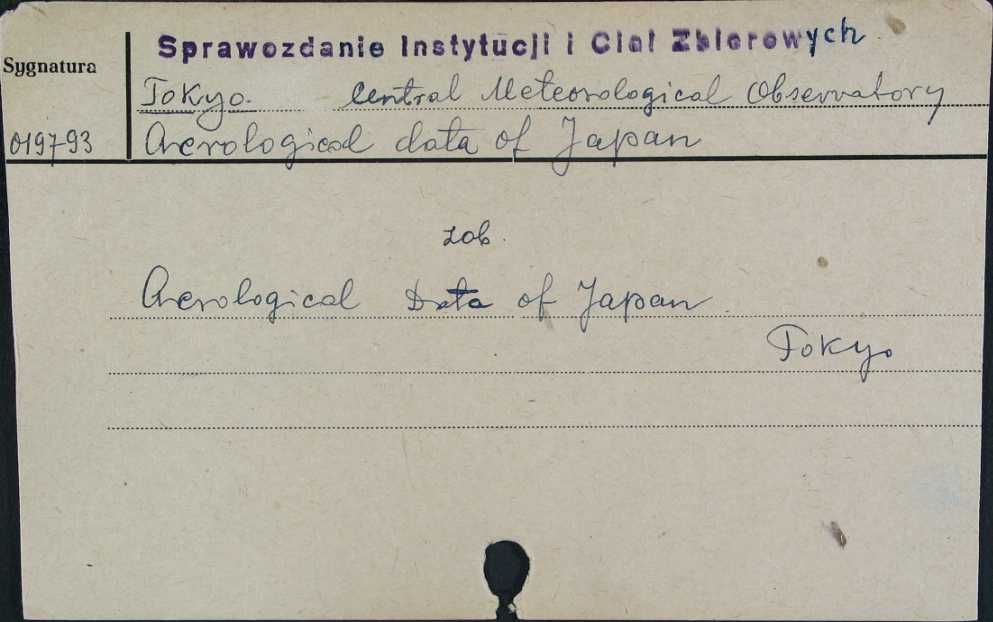 Sprawozdanie Instytucji i Ciał Zbiorowych
Sygnatura
Tokyo. Central Meteorological Observatory
019793 Aerological data of Japan
zob.
Aerological Data of Japan
Tokyo